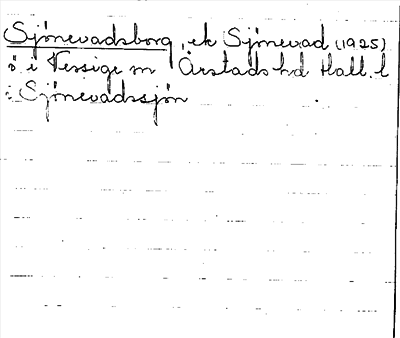 Sjönevadsborg, ek Sjönevad (1925)
ö i Vessige sn Årstads hd Hall. l
i Sjönevadssjön